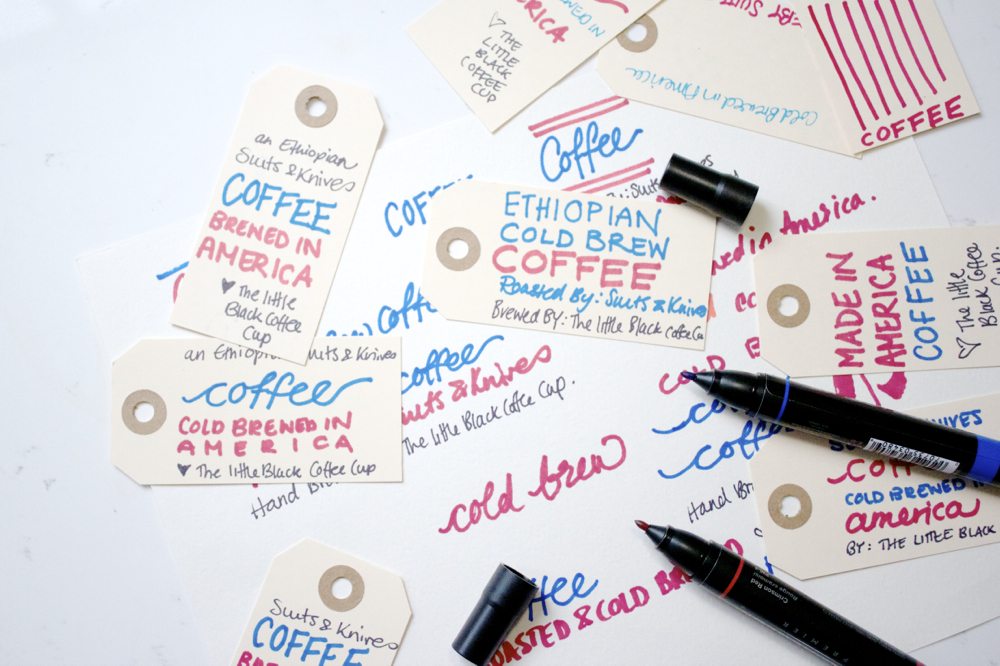 AMERICA
THE
LITTLE
BLACK
COFFEE
CUP
Cold Brewed in America
COFFEE
Coffee
an Ethiopian
Suits & Knives
COFFEE
BREWED IN
AMERICA
The little
Black Coffee
Cup
ETHIOPIAN
COLD BREW
COFFEE
Roasted By: Suits & Knives
Brewed BY: The little Black Coffee
in America.
MADE IN
AMERICA
COFFEE
The little
Black Coffee
an Ethiopian Suits & Knives
coffee
COLD BREWED IN
AMERICA
The little Black Coffee Cup
coffee
Suits & Knives
The little Black Coffee Cup.
cold brew
Hand
coffee
Hand
KNIVES
COLD BREWED IN
america
BY: THE LITTLE BLACK
Crimson Red
Suits & Knives
COFFEE
ROASTED & COLD